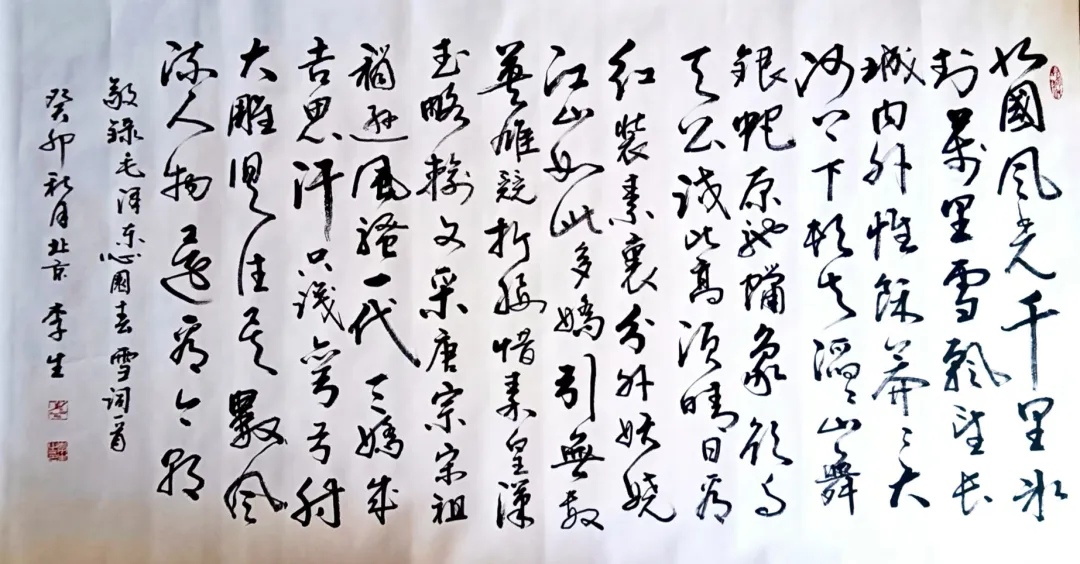 北國風光千里冰
封萬里雪飄望长
城内外惟餘莽々大
河上下頓失滔々山舞
銀蛇原馳蠟象欲与
天公试比高須晴日看
红裝素裹分外妖娆
江山如此多嬌引無數
英雄競折腰惜秦皇漢
武略輸文采唐宗宋祖
稍逊風骚一代天嬌成
吉思汗只識彎弓射
大雕俱往矣數風
流人物還看今朝
敬錄毛泽东沁園春雪词一首
癸卯秋月北京李生